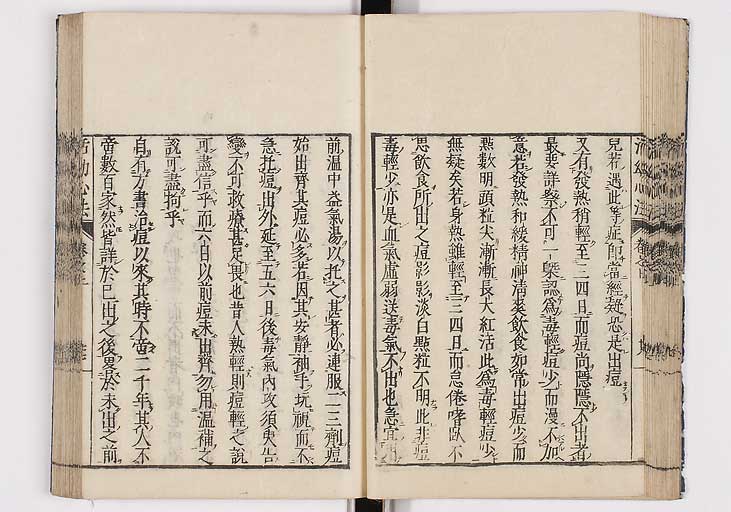 兒若遇此等症即當經疑恐是出痘
又有發熱稍輕至三四日而痘尚隱隱不出者
最要詳察不可一槩認爲毒輕痘少而漫不加
意若發熱和緩精神清爽飲食如常出痘少而
點數明頭粒尖漸漸長大紅活此爲毒輕痘少
無疑矣若身熱雖輕至三四日而怠倦嗜臥不
思飲食所出之痘影影淡白點粒不明此非痘
毒輕少亦是血氣虛弱送毒氣不出也急宜用
前温中益氣湯以托之甚者必連服二三劑痘
始出齊其痘必多若因其安靜袖手玩視而不
急托痘出外延至五六日後毒氣內攻須臾告
變不可救療甚足畏也昔人熱輕則痘輕之說
可盡信乎而六日以前痘未出齊勿用温補之
說可盡拘乎
自有方書治痘以來其時不啻二千年其人不
啻數百家然皆詳於已出之後畧於未出之前
活幼心法